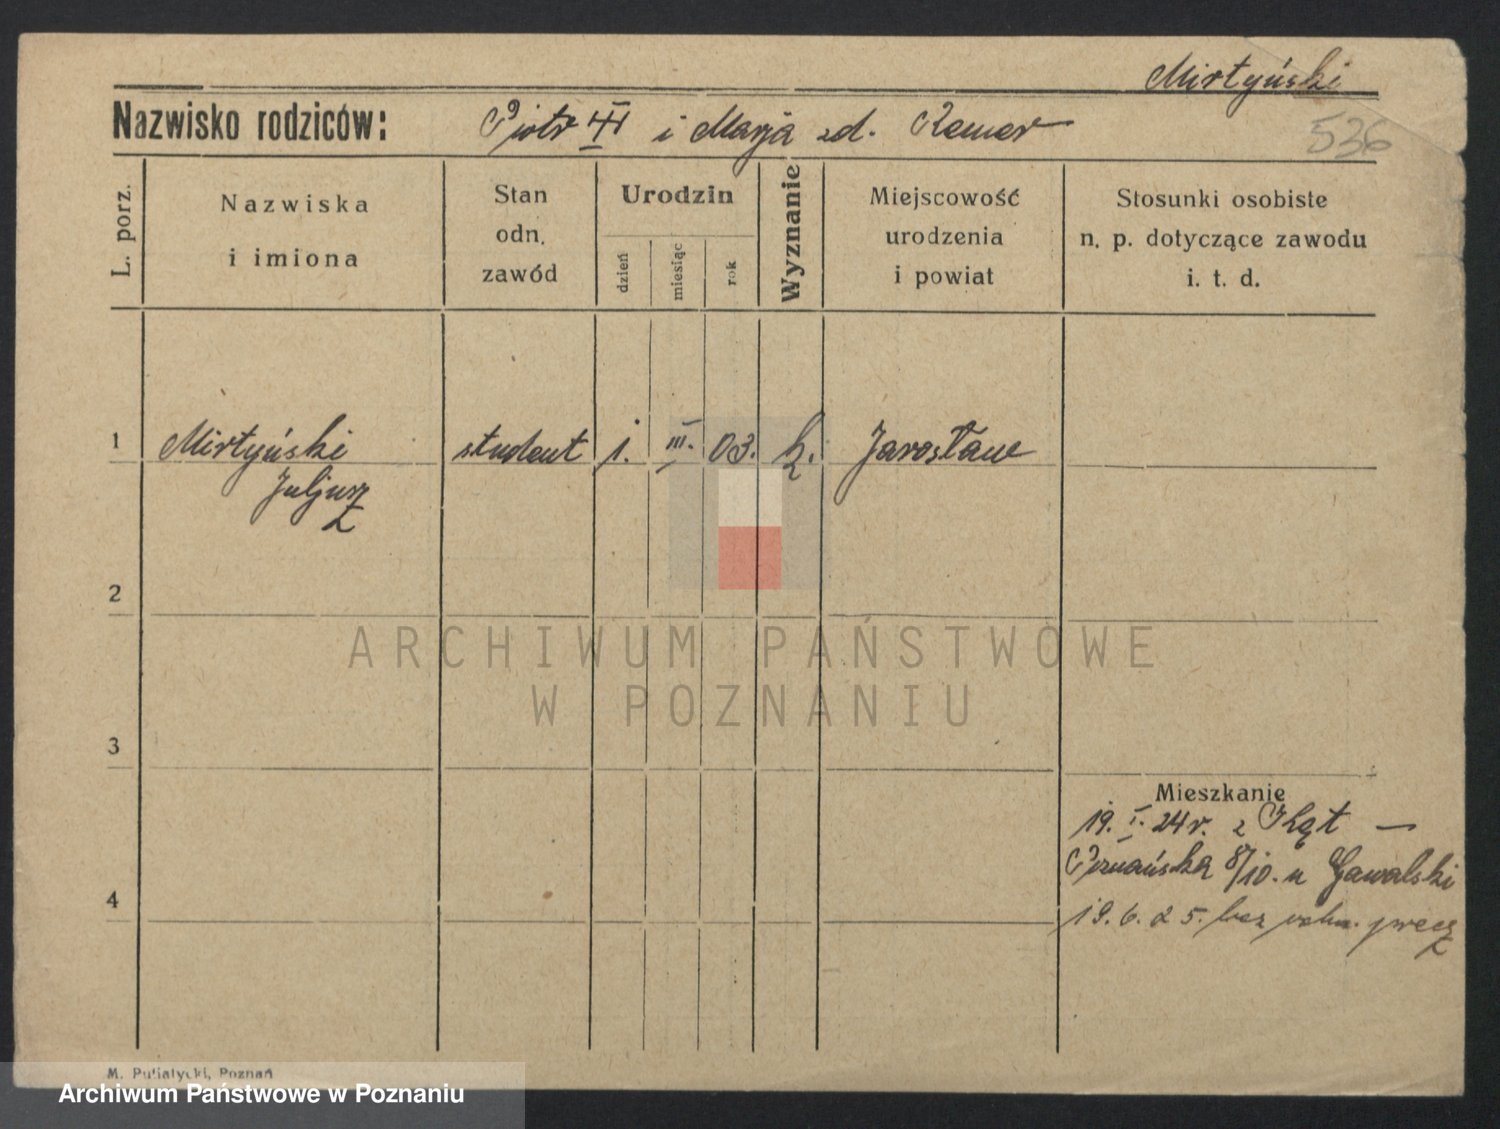 Mirtyński
536
Nazwisko rodziców: Piotr i Marja zd. Remer
L. porz.
Nazwiska i imiona
Stan odn. zawód
Urodzin
dzień
miesiąc
rok
Wyznanie
Miejscowość urodzenia i powiat
Stosunki osobiste n. p. dotyczące zawodu i. t. d.
1
Mirtyński student 1. III. 03. k. Jarosław
Juljusz
2
ARCHIWUM PAŃSTWOWE
W POZNANIU
3
Mieszkanie
19. I. 24 r. z Kąt —
Poznańska 8/10. u Gawalski
4
19. 6. 25. bez precz
M. Putiatycki, Poznań
Archiwum Państwowe w Poznaniu